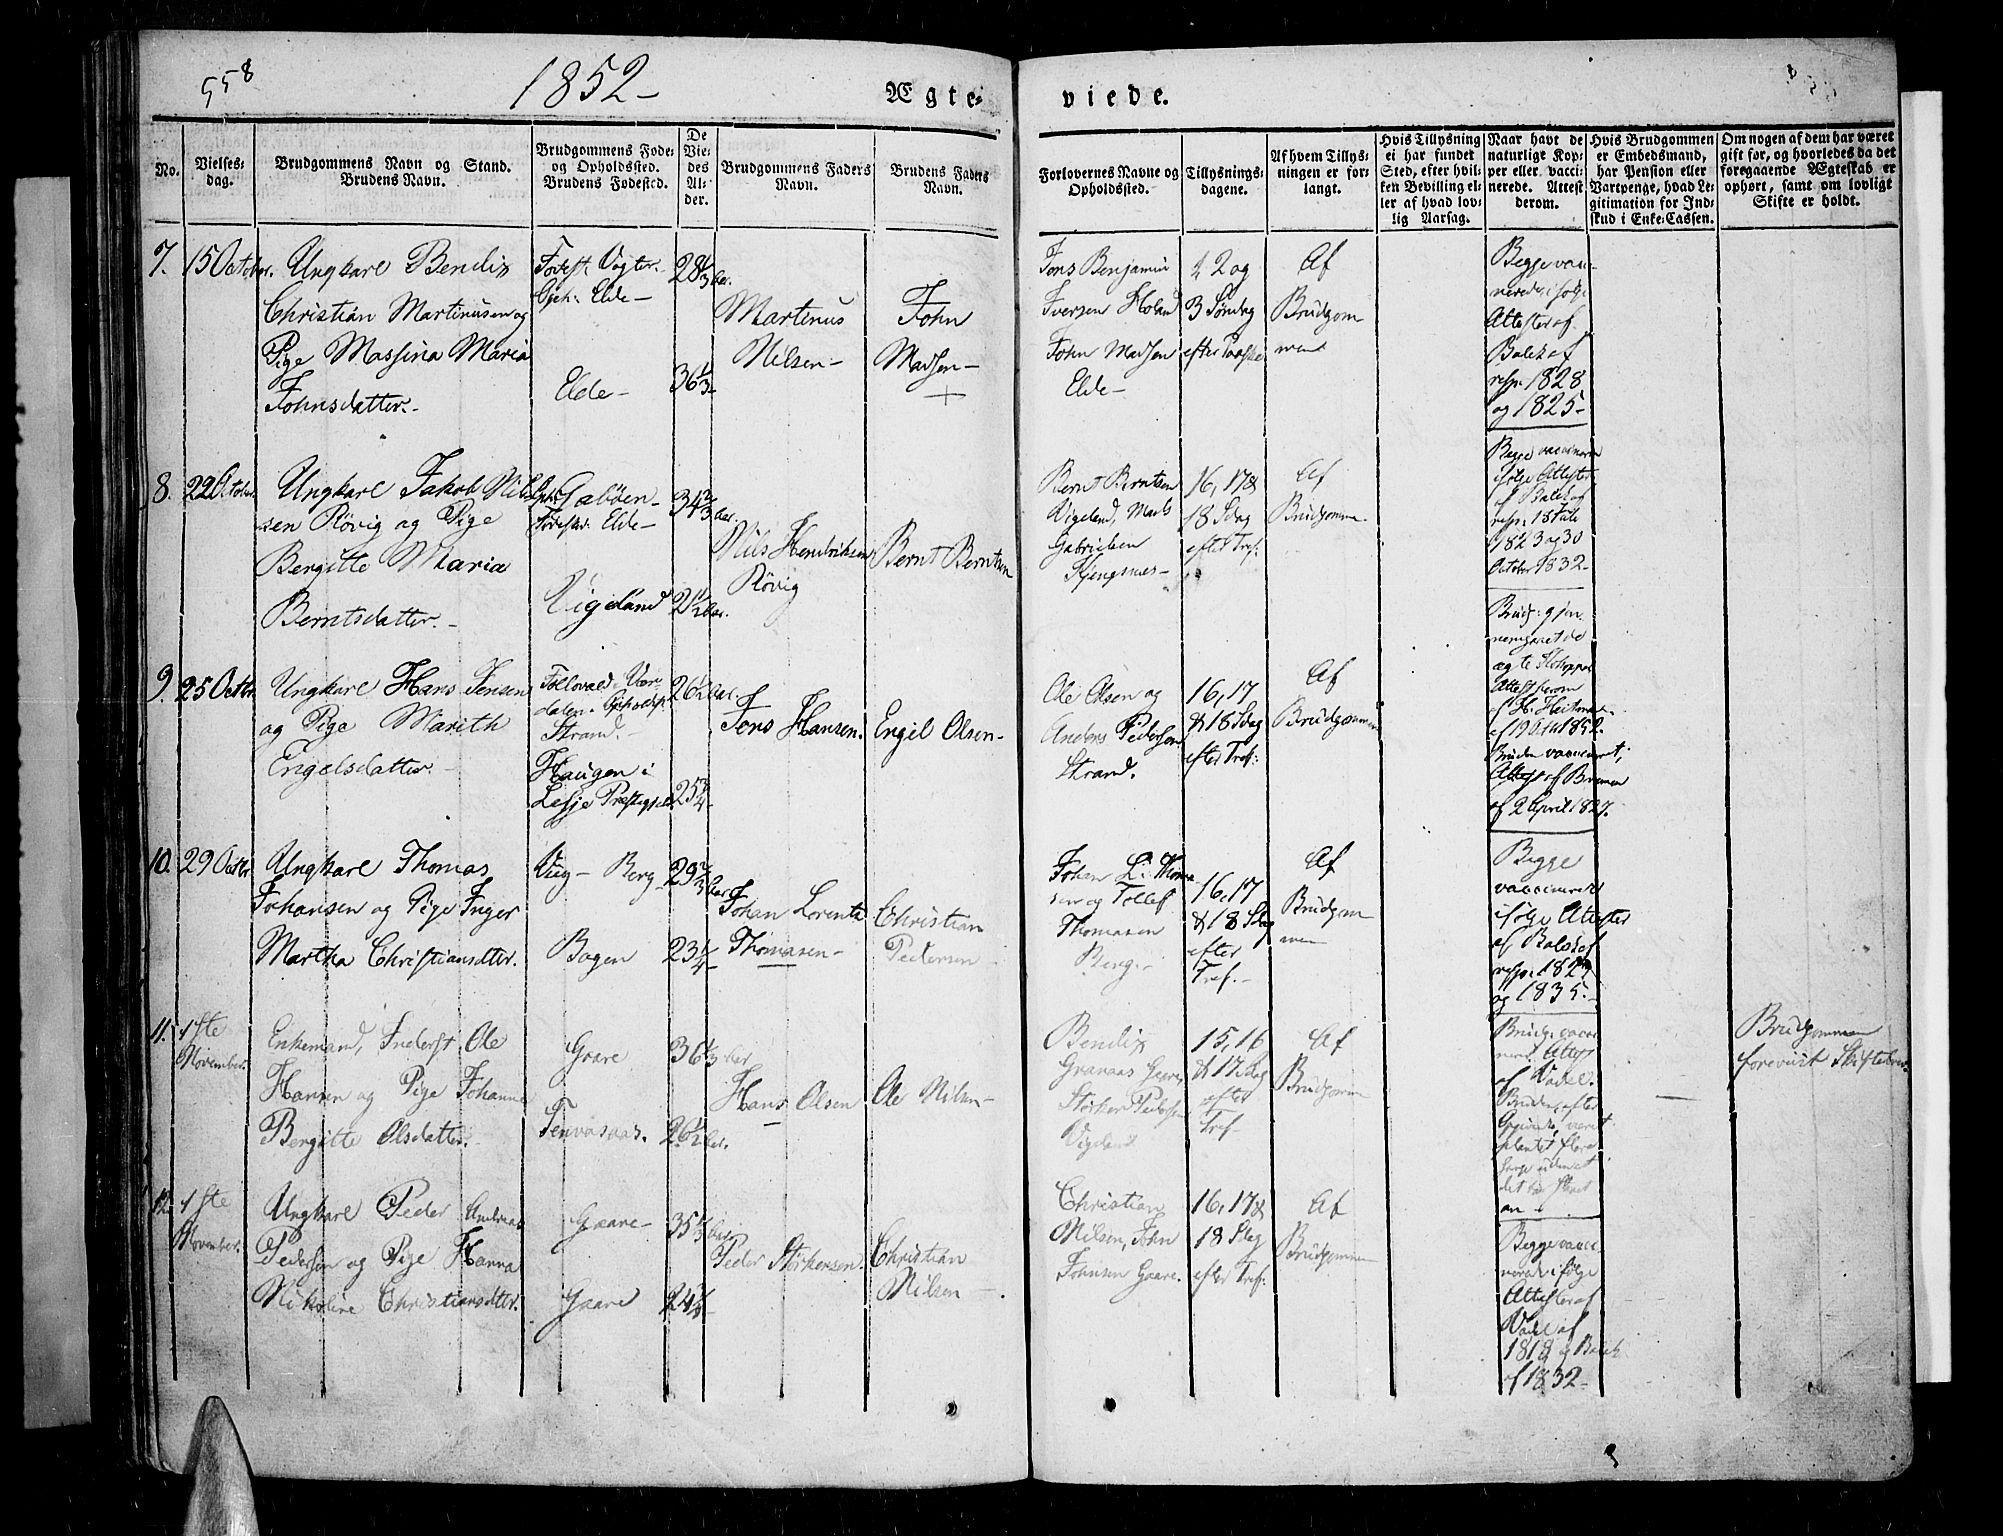 558
1852-
Ægte-
viede.
No.
Vielses-
dag.
Brudgommens Navn og Stand.
Brudens Navn.
Brudgommens Føde-
og Opholdssted.
Brudens Fødested.
De
Vie-
des
Al-
der.
Brudgommens Faders
Navn.
Brudens Faders
Navn.
Forlovernes Navne og
Opholdssted.
Tillysnings-
dagene.
Af hvem Tillys-
ningen er for-
langt.
Hvis Tillysning
ei har fundet
Sted, efter hvil-
ken Bevilling el-
ler af hvad lov-
lig Aarsag.
Naar havt de
naturlige Kop-
per eller vacci-
nerede. Attest
derom.
Hvis Brudgommen
er Embedsmand,
har Pension eller
Vartpenge, hvad Le-
gitimation for Ind-
skud i Enke-Cassen.
Om nogen af dem har været
gift før, og hvorledes da det
foregaaende Ægteskab er
ophørt, samt om lovligt
Skifte er holdt.
7.
15 October.
Ungkarl Bendix
Christian Martinusen og
Pige Massina Maria
Johnsdatter.
Elde-
28 1/3 Aar.
36 1/3
Martinus
Nilsen-
John
Madsen-
+
Jens Benjamin
Iversen Holand
John Madsen
Elde-
2 og
3 Søndag
efter Paaske
Af
Brudgom
men
Begge vacci-
nerede, ifølge
Attester af
Balch af
resp. 1828
og 1825-
8.
22 October
Ungkarl Jakob Nil-
sen Røvig og Pige
Bergitte Maria
Berntsdatter.-
Elde-
Vigeland
34 2/3 Aar.
21 1/2 Aar.
Nils Hendriksen
Røvig
Bernt Berntsen
Bernt Berntsen
Vigeland, Mads
Gabrielsen
16, 17 &
18 Sdag
efter Tref:
Af
Brudgomme.
Begge vaccineret
ifølge Attester
af Balch af
resp. 18 Juli
1823 og 30
October 1832-
9.
25 Octbr.
Ungkarl Hans Jensen
og Pige Marith
Engelsdatter.
Vær-
dalen. Opholdsst.
Strand.-
Haugen i
Lesje Præstegjeld
26 1/2 Aar.
25 3/4-
Jens Hansen.
Engil Olsen-
Ole Olsen og
Anders Pedersen
Strand.
16, 17
& 18 Sdag
efter Tref:
Af
Brudgommen
Brudg: gjen-
nemgaaet de
ægte Kopper
Attest herom
af H. Heitman
af 19 Octbr 1852.
Bruden vaccineret,
Attest af
af 2 April 1827.
10.
29 Octbr
Ungkarl Thomas
Johansen og Pige Inger
Martha Christiansdtter.
Berg
Bogen
29 2/3 Aar.
23 1/4-
Johan Lorentz
Thomasen-
Christian
Pedersen-
Johan L. Thoma
sen og Tollef
Thomasen
Berg.-
16, 17
& 18 Sdag
efter
Tref.-
Af
Brudgom
men
Begge
vaccineret
ifølge Attester
af Balch af
resp. 1827
og 1835.-
11.
1ste
November.
Enkemand, Inderst Ole
Hansen og Pige Johanna
Bergitte Olsdatter.
Gaare
36 1/3 Aar
26 1/2 Aar.
Hans Olsen
Ole Nilsen-
Bendix
Granaas Gaare,
Størker Pedersen
Vigeland
15, 16
& 17 Sdag
efter
Tref-
Af
Brudgomme
Brudg. vacci-
neret. Attest
af Vadel.
Bruden, efter
Opgivende, været
plantet flere
Gange uden at
det har slaaet
an-
Brudgommen
forevist Skiftebrev.
12.
1ste
November.
Ungkarl Peder Andreas
Pedersen og Pige Hanna
Nikoline Christiansdtter.
Gaare-
Gaare
35 1/3 Aar
Peder Størkersen.
Christian
Nilsen-
Christian
Nilsen, John
Johnsen Gaare.
16, 17 &
18 Sdag
efter Tref:
Af
Brudgommen
Begge vacci-
nerede ifølge
Attester af
Vadel af
1818 og Balch
af 1832-